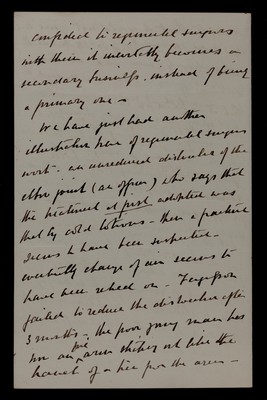 confided to regimental surgeons
with them it inevitably becomes a
secondary business, instead of being
a primary one -
We have just had another
illustration here of regimental surgeons
work - an unreduced dislocation of the
elbow joint (an officer) who says that
the treatment at first adopted was
that by cold lotions - then a fracture
seems to have been suspected -
eventually change of air seems to
have been relied on - Fergusson
failed to reduce the dislocation after
3 months - the poor young man has
now an arm sticking out like the
branch of a tree from the